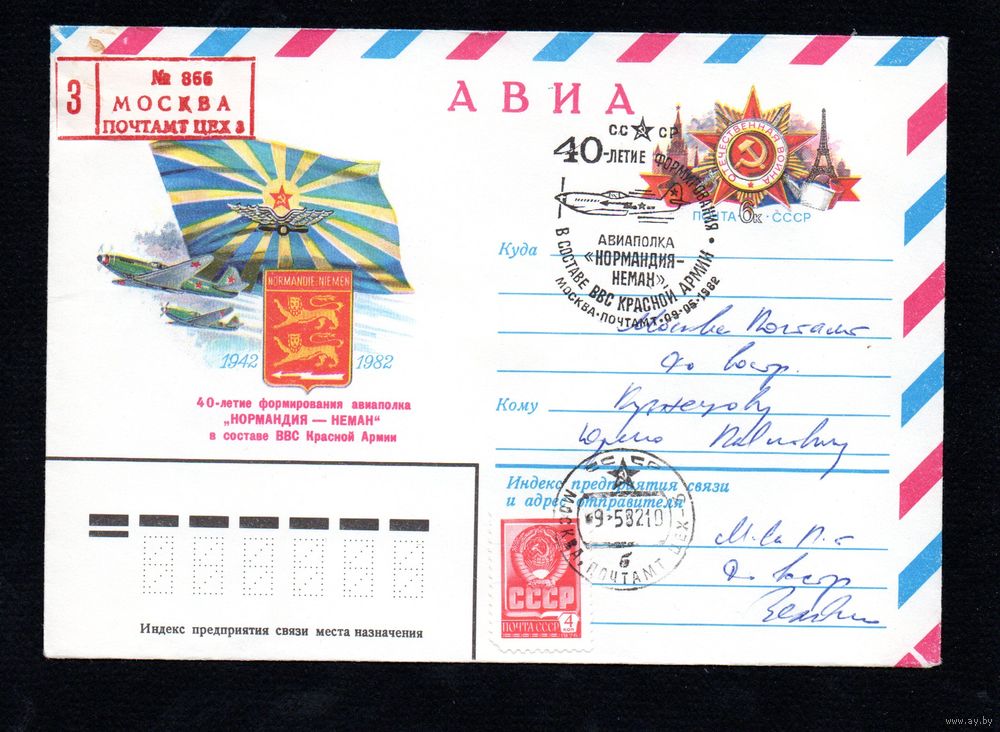 З
№ 866
МОСКВА
ПОЧТАМТ ЦЕХ 3
АВИА
ОТЕЧЕСТВЕННАЯ ВОЙНА
ПОЧТА · 6к · СССР
СССР
40-ЛЕТИЕ ФОРМИРОВАНИЯ
АВИАПОЛКА
«НОРМАНДИЯ-
НЕМАН»
В СОСТАВЕ ВВС КРАСНОЙ АРМИИ •
МОСКВА-ПОЧТАМТ·09-05-1982
NORMANDIE-NIEMEN
1942
1982
40-летие формирования авиаполка
„НОРМАНДИЯ — НЕМАН“
в составе ВВС Красной Армии
Куда
Москва Почтамт
До востр.
Кому
Кузнецову
Юрию Павловичу
Индекс предприятия связи
и адрес отправителя
СССР
9-58210
МОСКВА, ПОЧТАМТ ЦЕХ-9
б
До востр
СССР
ПОЧТА СССР
4
коп
1976
Индекс предприятия связи места назначения
www.ay.by